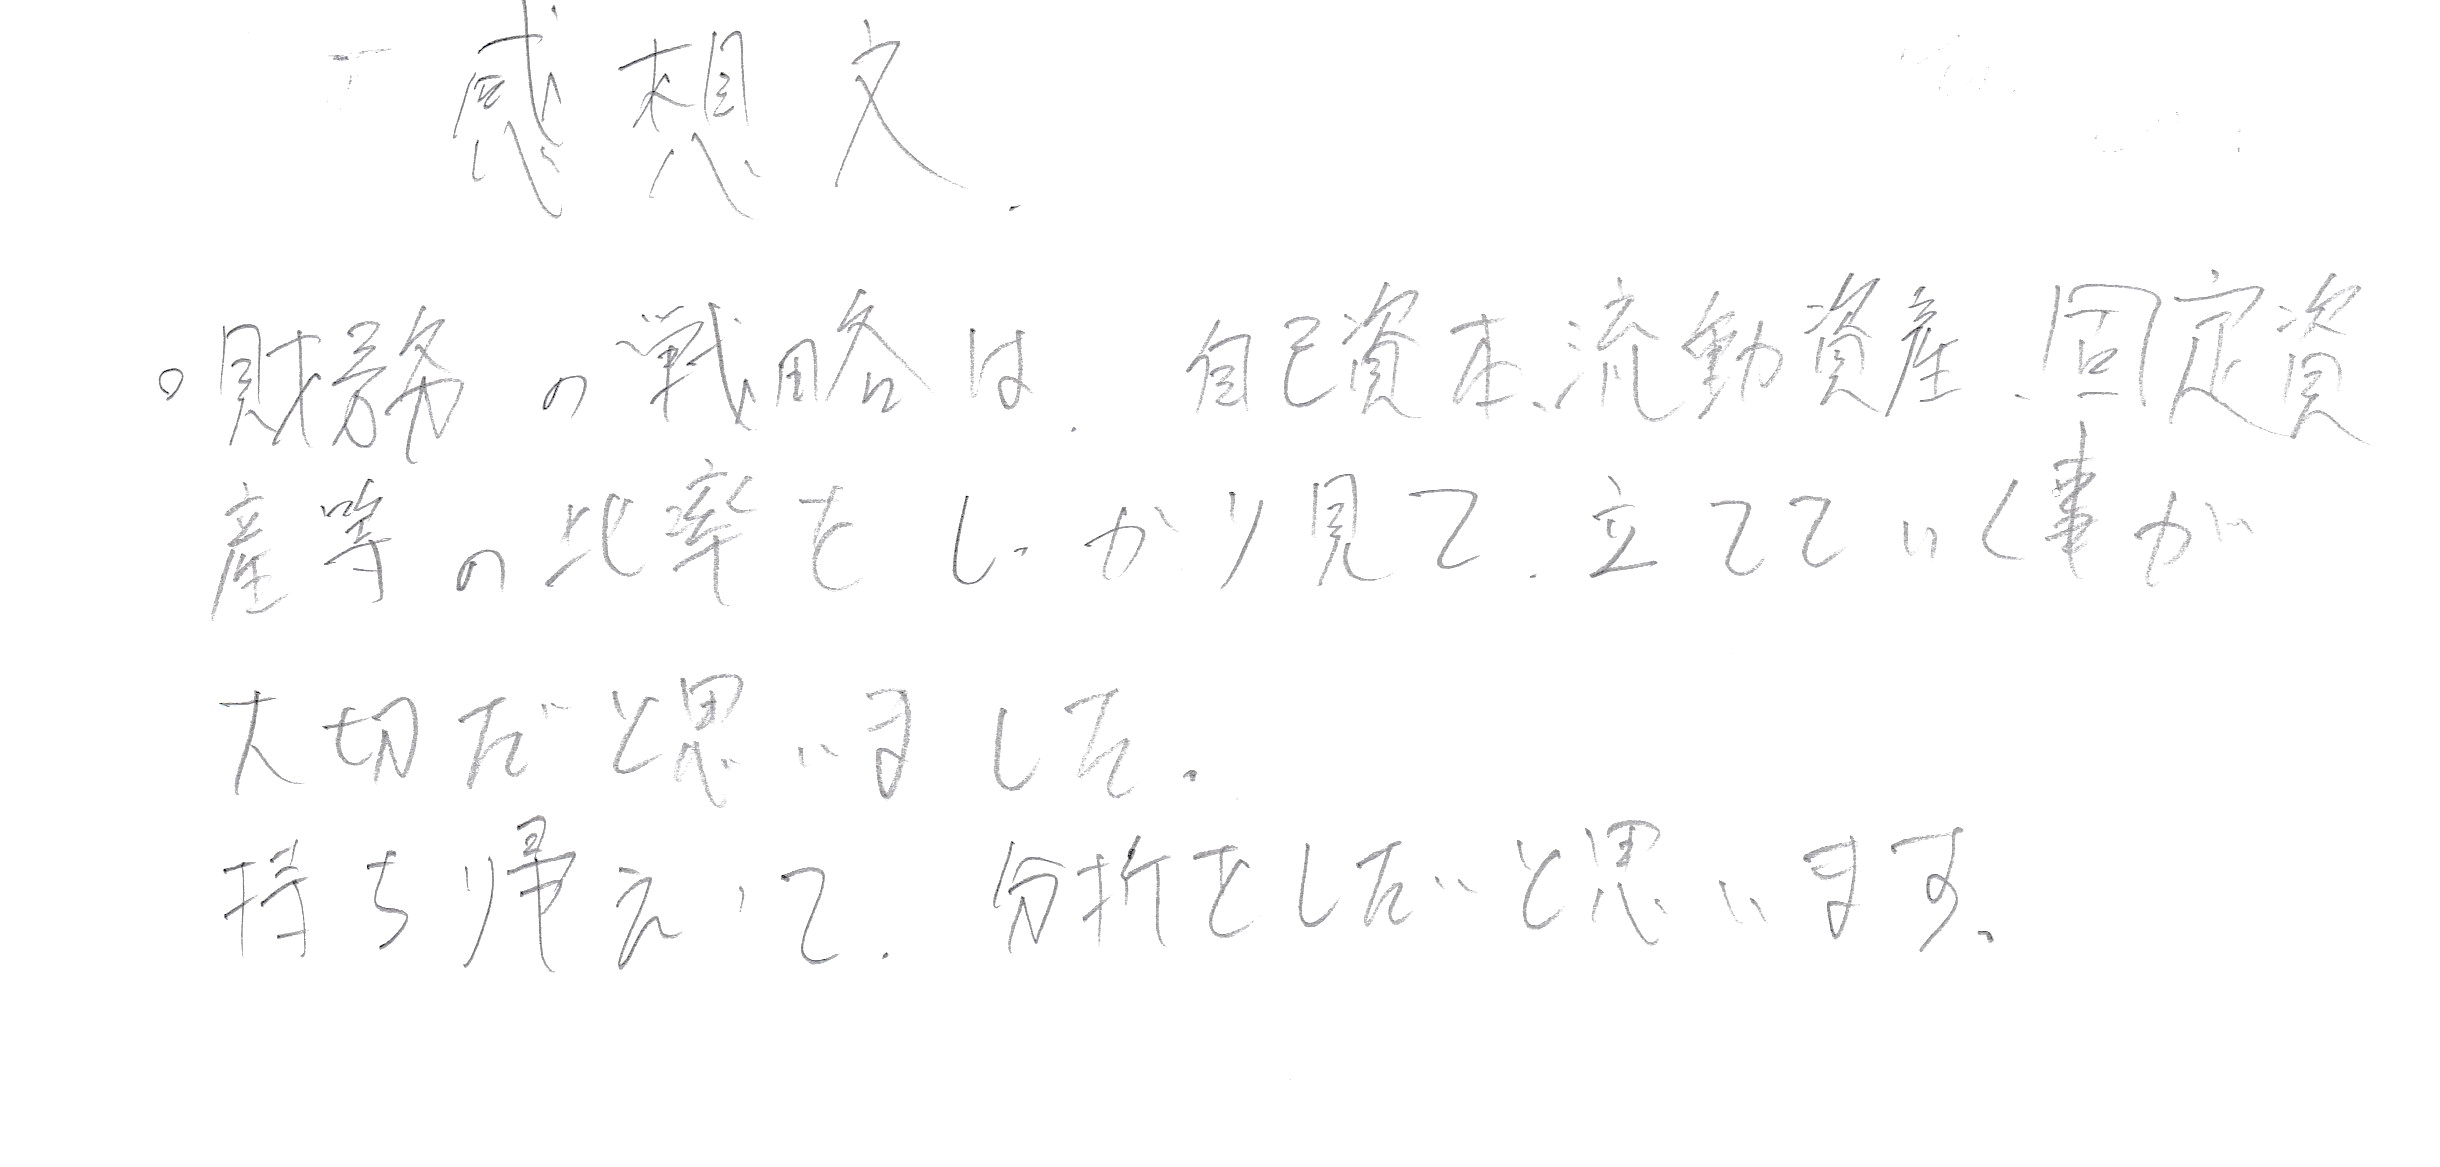 感想文.
。財務の戦略は、自己資本、流動資産、固定資
産等の比率をしっかり見て、立てていく事が
大切だと思いました.
持ち帰えって、分析をしたいと思います、